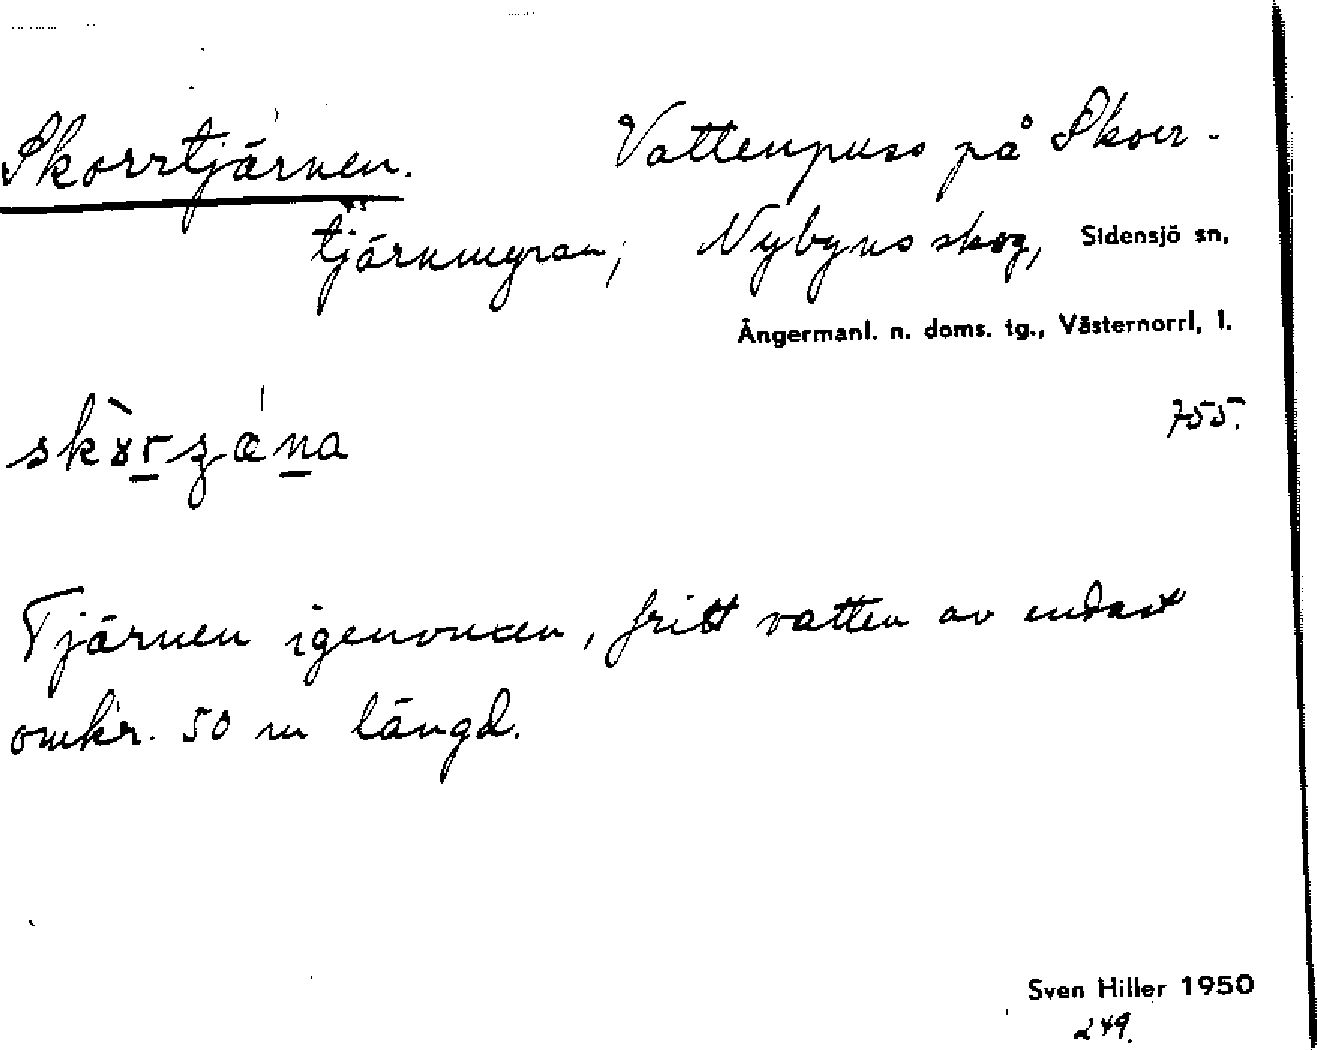 Skorrtjärnen. Vattenpuss på Skorr-
tjärnmyran, Nybyns skog, Sidensjö sn,
Ångermanl. n. doms. tg., Västernorrl, l.
755.
Tjärnen igenvuxen, fritt vatten av endast
omkr. 50 m längd.
Sven Hiller 1950
249.